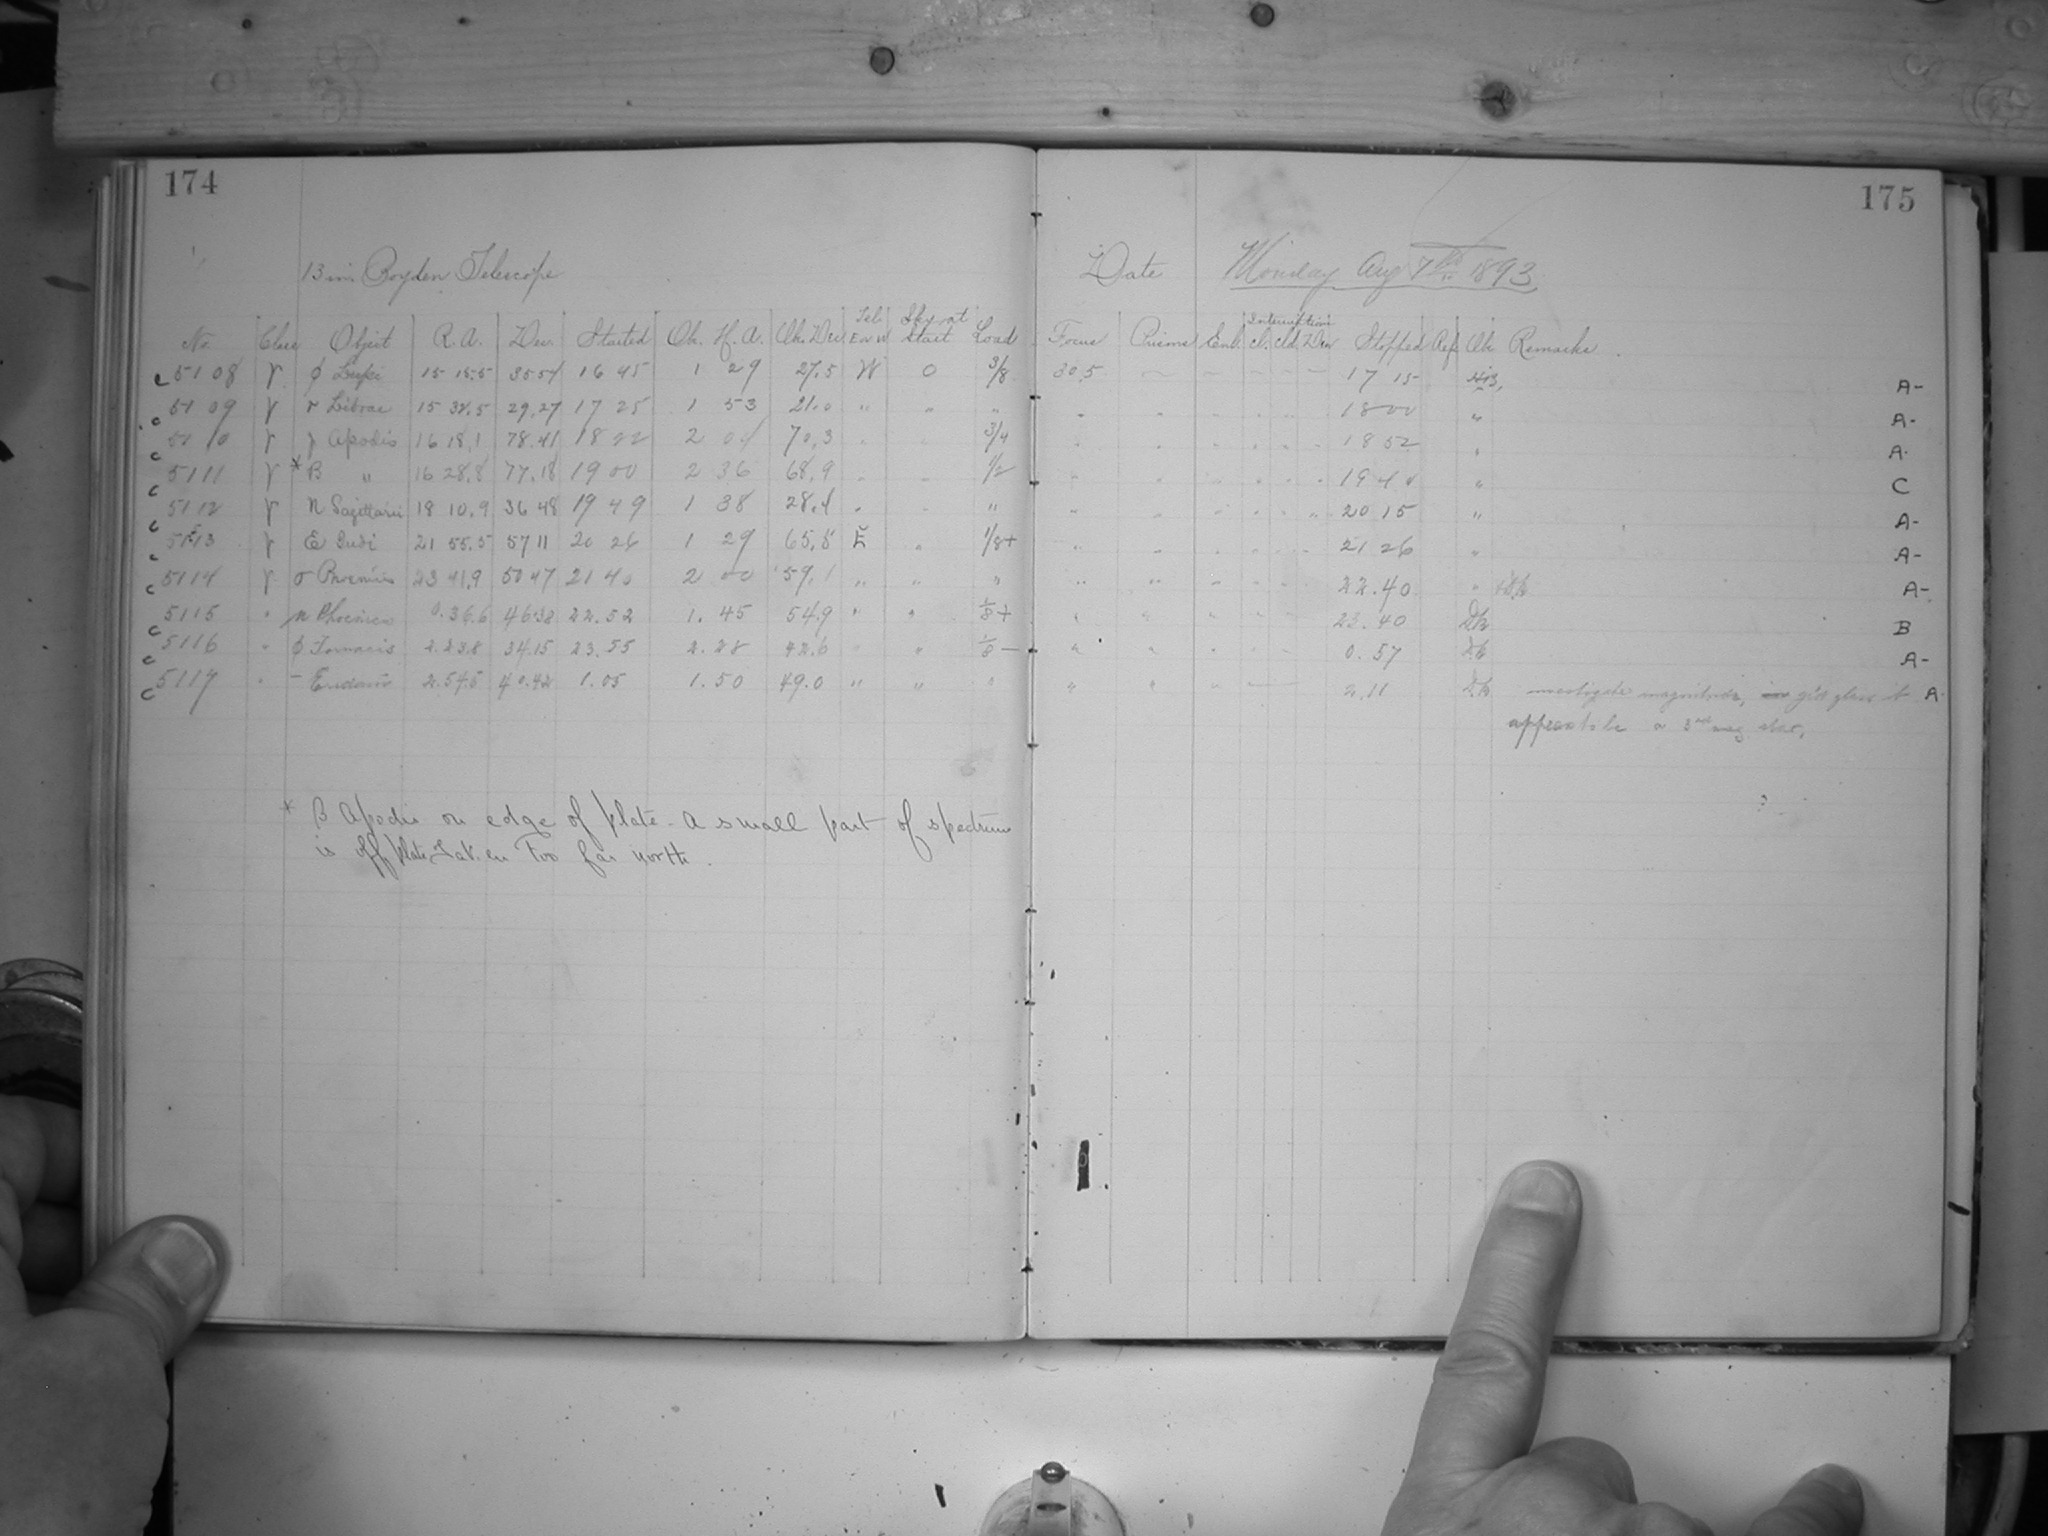 174
175
13 in Boyden Telescope
Date Monday Aug 7th 1893
No Class Object R.A. Dec. Started Ob. H.A. Ob. Dec. Tel. E or W Sky at Start Load Focus Prisms Enl. Interruption Cl. Cld. Dew Stopped Ref. Ob Remarks
c 5108 γ φ Lupi 15 15.5 35 54 16 45 1 29 27.5 W 0 3/8 30.5 17 15 A-
c 5109 γ Librae 15 32.5 29.27 17 25 1 53 21.0 " " " 18 00 " A-
c 5110 γ γ Apodis 16 18.1 78.41 18 22 2 70.3 3/4 18 52 " A-
c 5111 γ * β " 16 28.8 77.18 19 00 2 36 68.9 1/2 19 40 " C
c 5112 γ η Sagittarii 18 10.9 36 48 19 49 1 38 28.4 " " 20 15 " A-
c 5113 γ ε Indi 21 55.5 57 11 20 26 1 29 65.5 E " 1/8+ 21 26 " A-
c 5114 γ σ Phoenicis 23 41.9 50 47 21 40 2 00 59.1 " " " 22.40 " A-
c 5115 " Phoenicis 0.36.6 46.38 22.52 1.45 54.9 " " 1/8+ 23.40 B
c 5116 " φ Fornacis 2.23.8 34.15 23.55 2.28 42.6 " " 1/8- 0.57 A-
c 5117 " - Eridani 2.54.5 40.42 1.05 1.50 49.0 " " " 2.11 investigate magnitude, glass it A-
appears to be a 3rd mag star.
* β Apodis on edge of plate - A small part of spectrum
is off plate. Taken too far north.
?